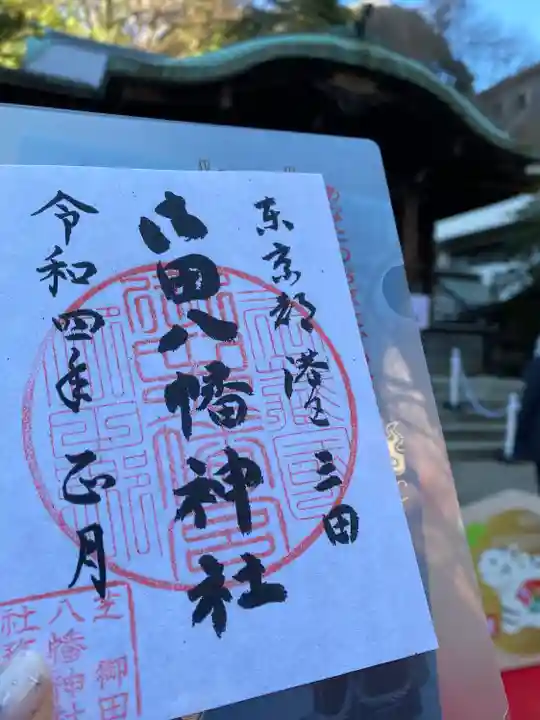 东京都港区三田
御田八幡神社
令和四年正月
芝御田
八幡神社
社務